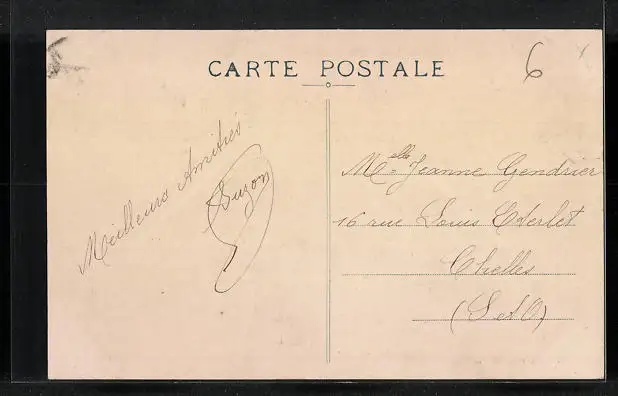 CARTE POSTALE
6
Meilleures Amitiés
Suzon
Melle Jeanne Gendrier
16 rue Louis Eterlet
Chelles
(S et O)